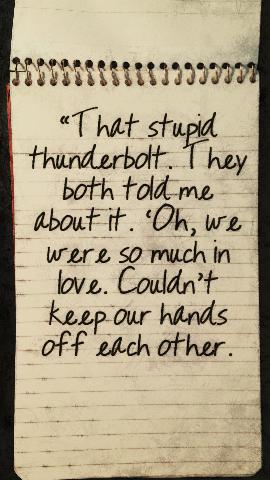 “That stupid
thunderbolt. They
both told me
about it. ‘Oh, we
were so much in
love. Couldn’t
keep our hands
off each other.